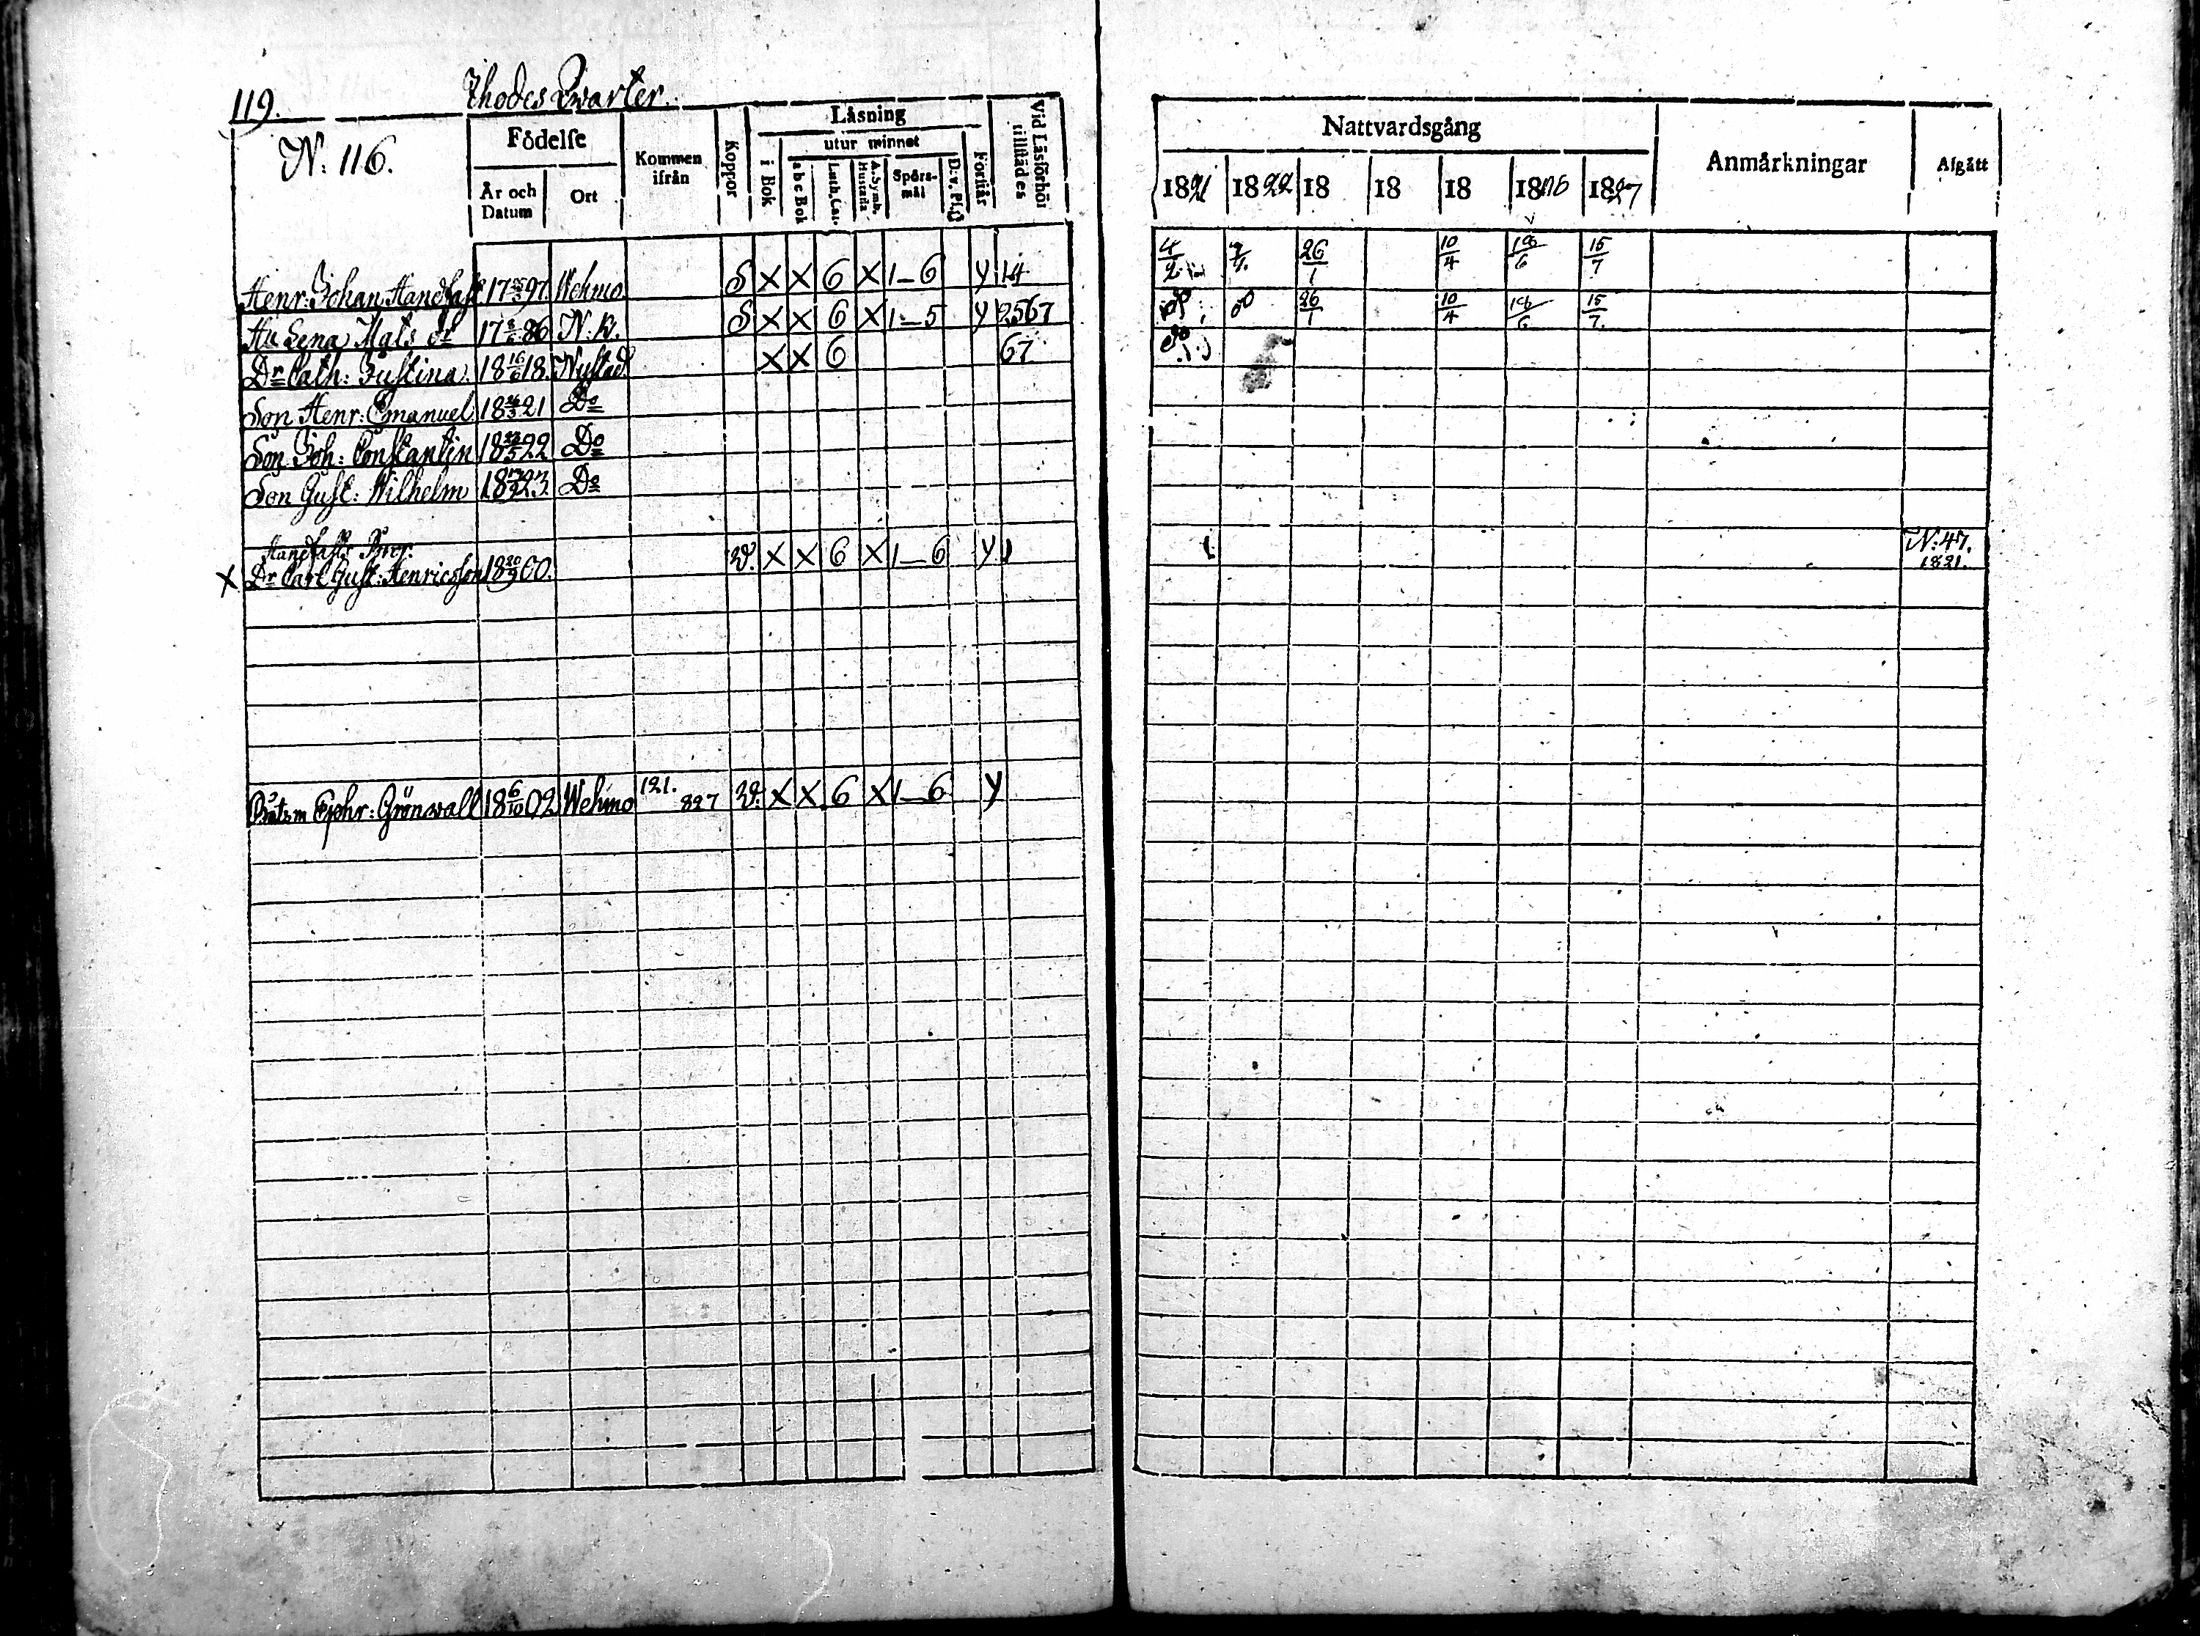 119. Ihodes Qwarter.
N: 116.
Födelse
År och Datum
Ort
Kommen ifrån
Koppor
Läsning
i Bok
utur minnet
abcBok
Luth. Cat.
A. Symb. Hustafla
Spörsmål
D:v. Ps.
Förstår
Vid Läsförhör tillstädes
Nattvardsgång
1821 1822 18 18 18 1826 1827
Anmärkningar
Afgått
Henr: Johan Handfast 17 97 Wehmo S X X 6 X 1–6 y 14 4/2 26/1 10/4 15/7
Hu Lena Mats dr 17 86 N:K. S X X 6 X 1–5 y 2567 do do 26/1 10/4 15/7
Dr Cath: Justina 18 16/6 18 Nystad X X 6 67 do
Son Henr: Emanuel 18 21 Do
Son Joh: Constantin 18 22 Do
Son Gust: Wilhelm 18 23 Do
Handfasts Bror
X Dr Carl Gust: Henricsson 18 00. W. X X 6 X 1–6 y 1 N: 47. 1821.
Båtsm Ephr: Grönvall 18 6/10 02 Wehmo 121. 827 W. X X 6 X 1–6 y